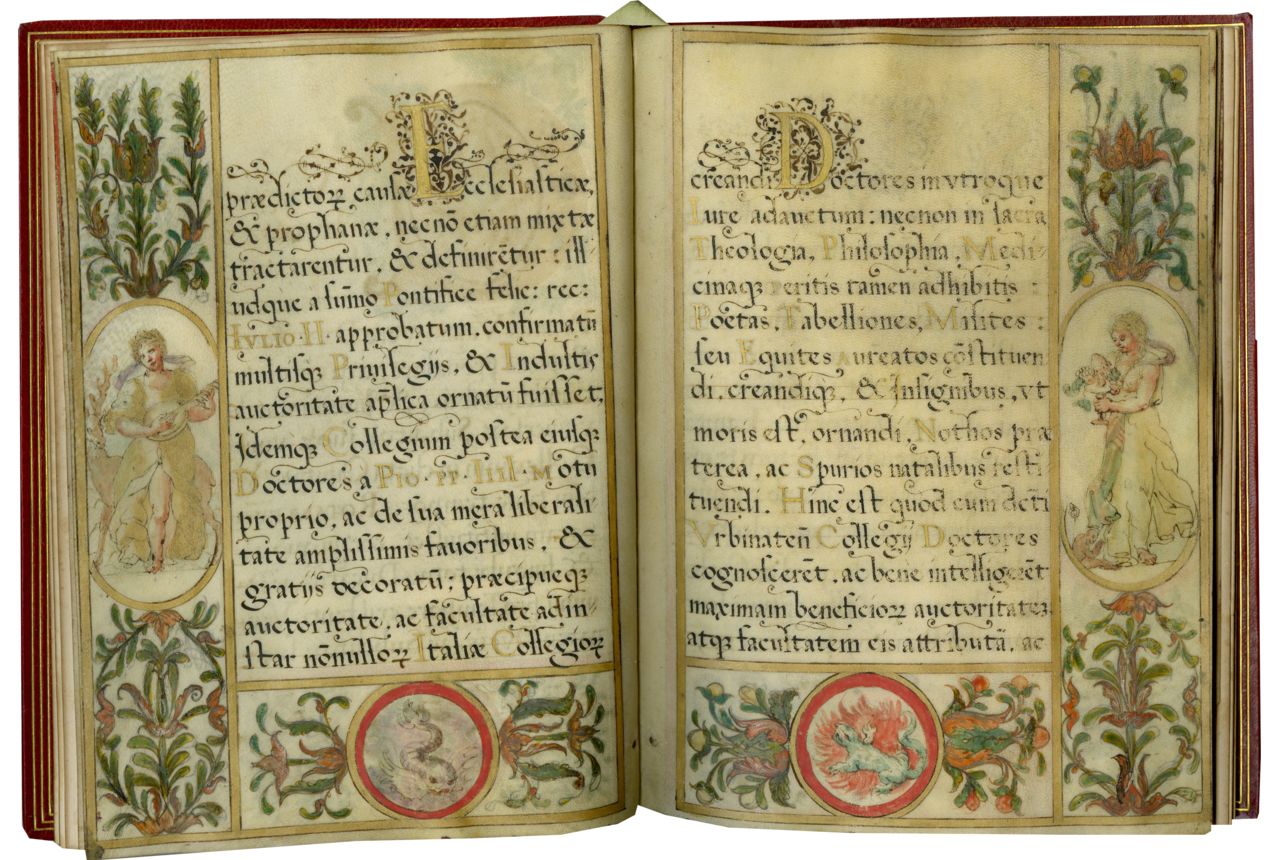 prædictoꝝ causæ Ecclesiasticæ,
& prophanæ, necnõ etiam mixtæ
tractarentur, & definirẽtur: ill-
udque a sũmo Pontifice felic: rec:
IVLIO·II· approbatum, confirmatũ
multisq; Priuilegijs, & Indultis
auctoritate apl̃ica ornatũ fuisset,
Idemq; Collegium postea eiusq;
Doctores a PIO·PP·IIII·Motu
proprio, ac de sua mera liberali-
tate amplissimis fauoribus, &
gratijs decoratũ; præcipueq;
auctoritate, ac facultate ad in-
star nõnulloꝝ Italiæ Collegioꝝ
creandi Doctores in vtroque
Iure adauctum: necnon in sacra
Theologia, Philosophia, Medi-
cinaq; peritis tamen adhibitis:
Poetas, Tabelliones, Milites:
seu Equites aureatos cõstituen
di, creandiq;, & Insignibus, vt
moris est, ornandi, Nothos præ
terea, ac Spurios natalibus resti
tuendi. Hinc est quod cum dicti
Vrbinateñ Collegij Doctores
cognoscerẽt, ac bene intelligerẽt
maximam beneficioꝝ auctoritatem,
atq; facultatem eis attributã, ac